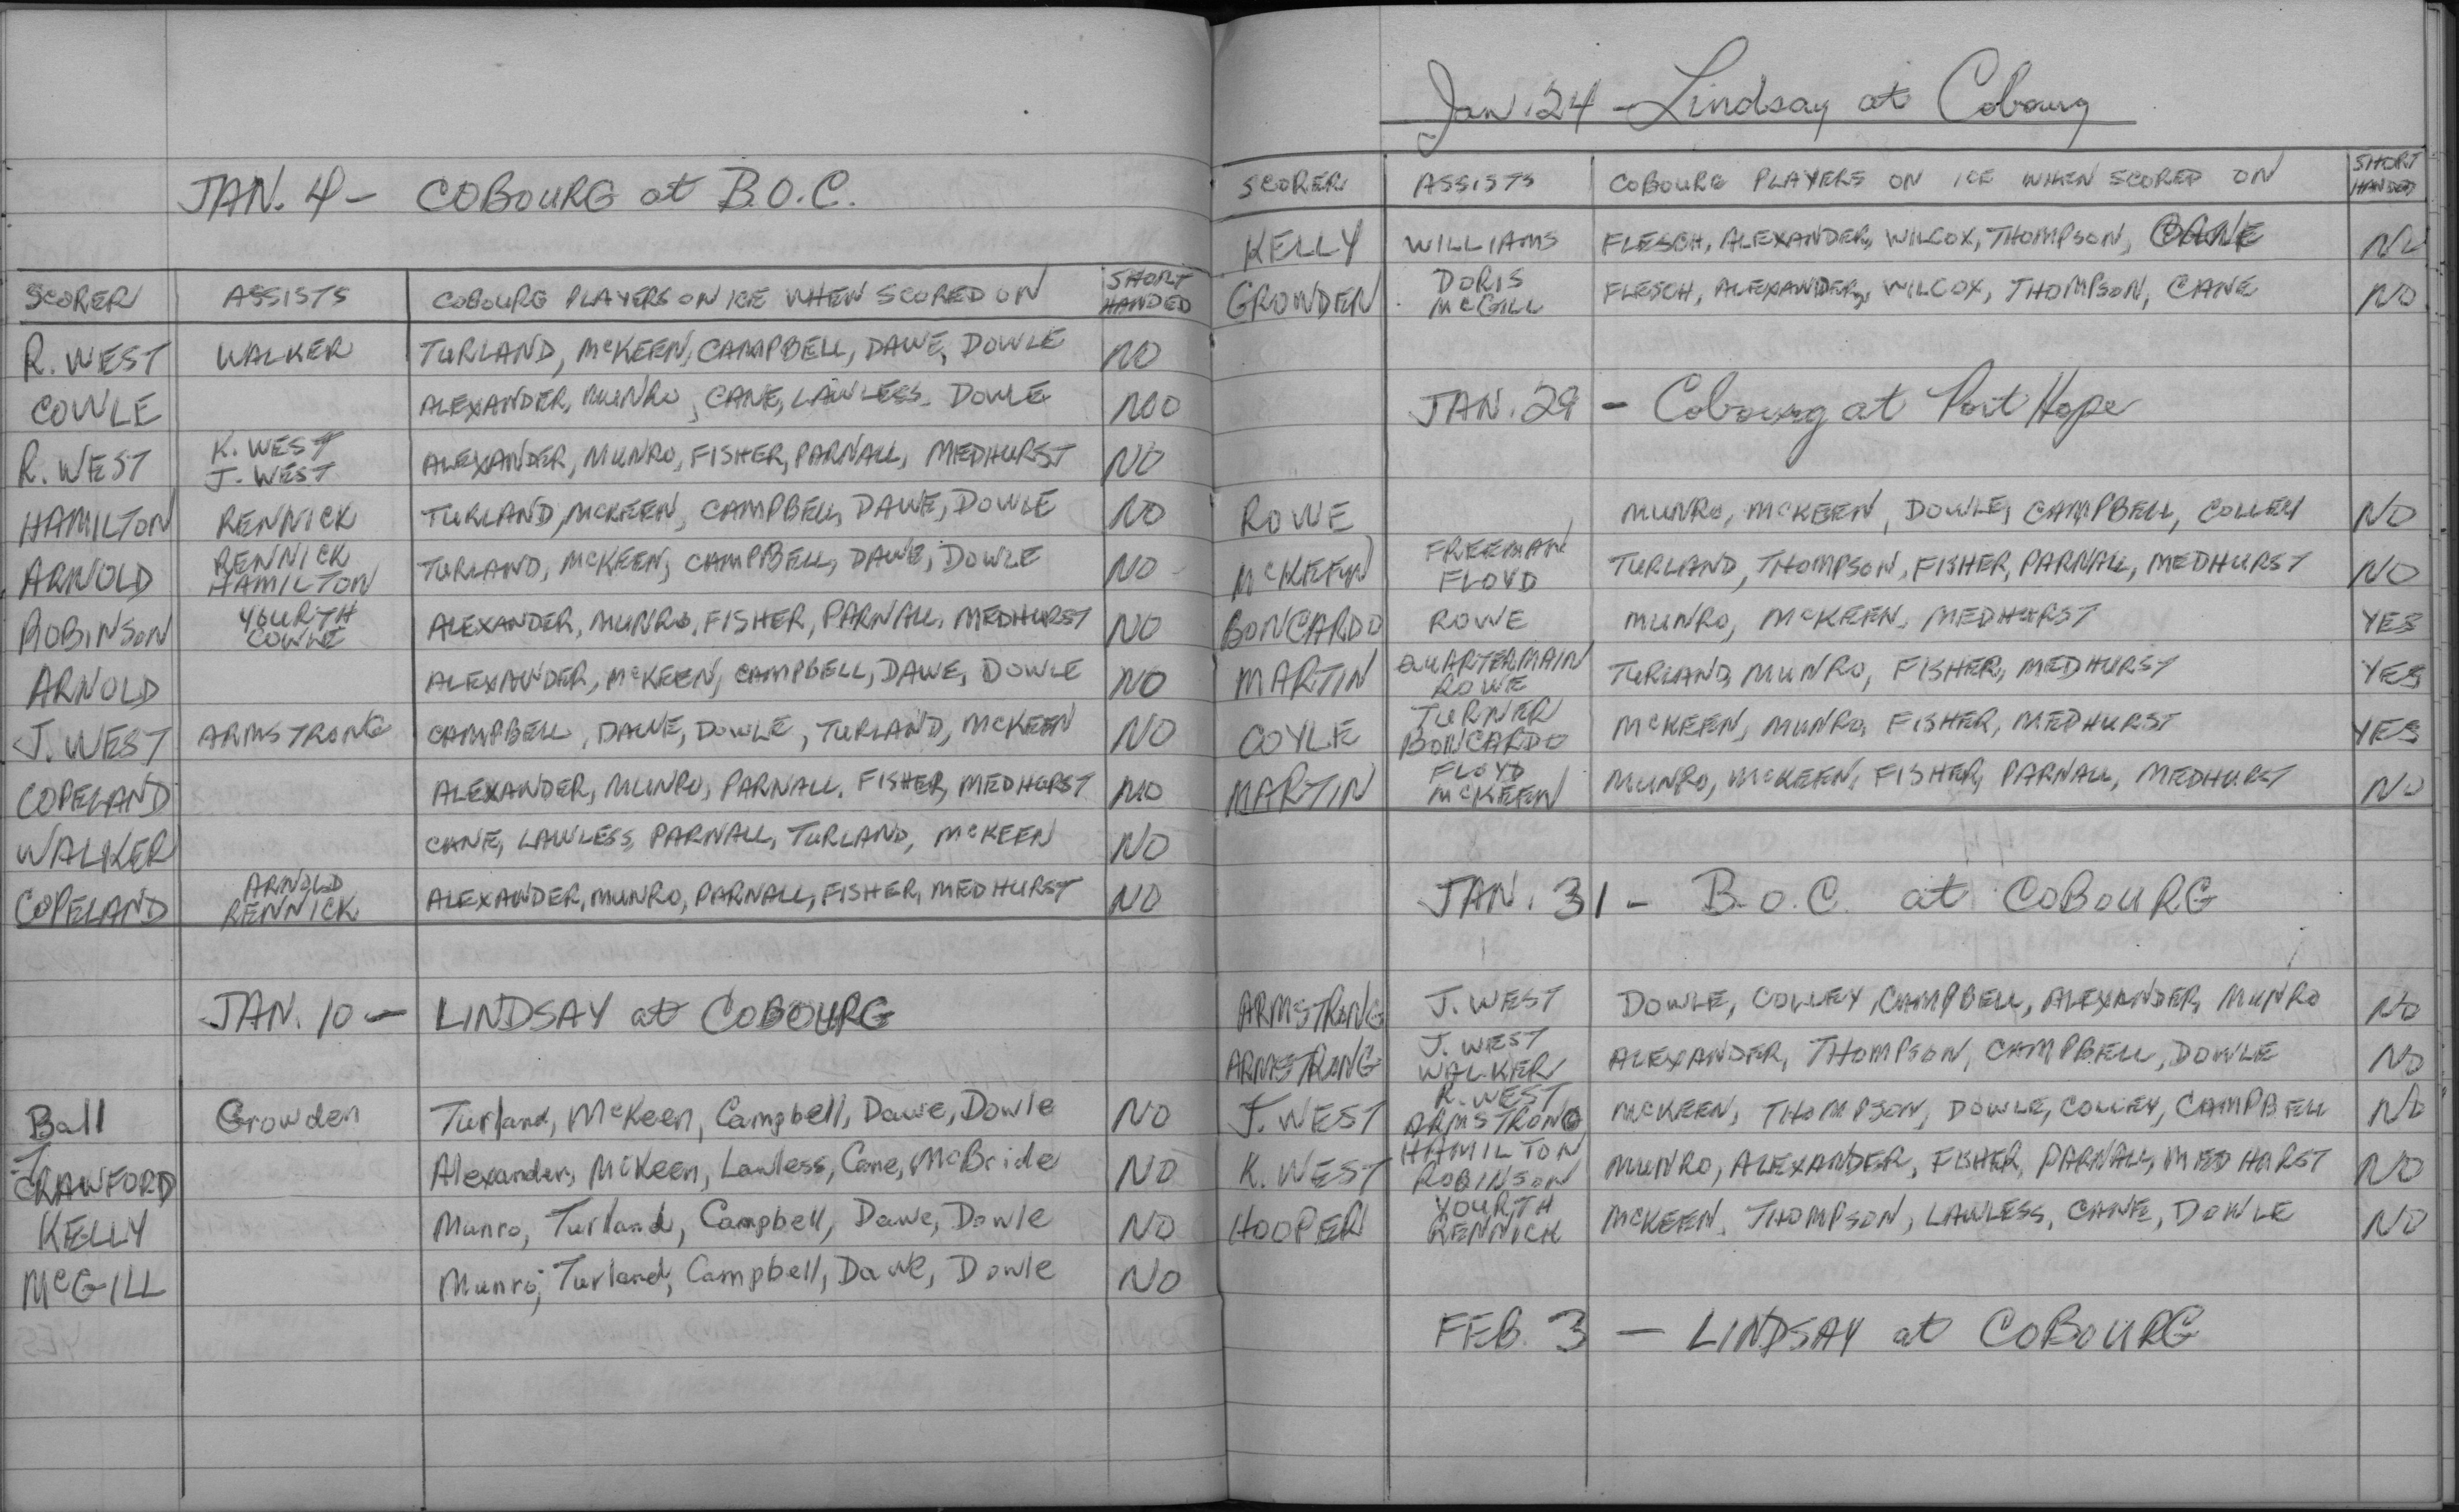 JAN. 4 - COBOURG at B.O.C.
SCORER ASSISTS COBOURG PLAYERS ON ICE WHEN SCORED ON SHORT HANDED
R. WEST WALKER TURLAND, McKEEN, CAMPBELL, DAWE, DOWLE NO
COWLE ALEXANDER, MUNRO, CANE, LAWLESS, DOWLE NO
R. WEST K. WEST J. WEST ALEXANDER, MUNRO, FISHER, PARNALL, MEDHURST NO
HAMILTON RENNICK TURLAND, McKEEN, CAMPBELL, DAWE, DOWLE NO
ARNOLD RENNICK HAMILTON TURLAND, McKEEN, CAMPBELL, DAWE, DOWLE NO
ROBINSON YOURTH COWLE ALEXANDER, MUNRO, FISHER, PARNALL, MEDHURST NO
ARNOLD ALEXANDER, McKEEN, CAMPBELL, DAWE, DOWLE NO
J. WEST ARMSTRONG CAMPBELL, DAWE, DOWLE, TURLAND, McKEEN NO
COPELAND ALEXANDER, MUNRO, PARNALL, FISHER, MEDHURST NO
WALKER CANE, LAWLESS, PARNALL, TURLAND, McKEEN NO
COPELAND ARNOLD RENNICK ALEXANDER, MUNRO, PARNALL, FISHER, MEDHURST NO
JAN. 10 - LINDSAY at COBOURG
Ball Growden Turland, McKeen, Campbell, Dawe, Dowle NO
CRAWFORD Alexander, McKeen, Lawless, Cane, McBride NO
KELLY Munro, Turland, Campbell, Dawe, Dowle NO
McGILL Munro, Turland, Campbell, Dawe, Dowle NO
Jan. 24 - Lindsay at Cobourg
SCORER ASSISTS COBOURG PLAYERS ON ICE WHEN SCORED ON SHORT HANDED
KELLY WILLIAMS FLESCH, ALEXANDER, WILCOX, THOMPSON, CANE NO
GROWDEN DORIS McGILL FLESCH, ALEXANDER, WILCOX, THOMPSON, CANE NO
JAN. 29 - Cobourg at Port Hope
ROWE MUNRO, McKEEN, DOWLE, CAMPBELL, COLLEY NO
McKEEN FREEMAN FLOYD TURLAND, THOMPSON, FISHER, PARNALL, MEDHURST NO
BONCARDO ROWE MUNRO, McKEEN, MEDHURST YES
MARTIN QUARTERMAIN ROWE TURLAND, MUNRO, FISHER, MEDHURST YES
COYLE TURNER BONCARDO McKEEN, MUNRO, FISHER, MEDHURST YES
MARTIN FLOYD McKEEN MUNRO, McKEEN, FISHER, PARNALL, MEDHURST NO
JAN. 31 - B.O.C. at COBOURG
ARMSTRONG J. WEST DOWLE, COLLEY, CAMPBELL, ALEXANDER, MUNRO NO
ARMSTRONG J. WEST WALKER ALEXANDER, THOMPSON, CAMPBELL, DOWLE NO
J. WEST R. WEST ARMSTRONG McKEEN, THOMPSON, DOWLE, COLLEY, CAMPBELL NO
K. WEST HAMILTON ROBINSON MUNRO, ALEXANDER, FISHER, PARNALL, MEDHURST NO
HOOPER YOURTH RENNICK McKEEN, THOMPSON, LAWLESS, CANE, DOWLE NO
FEB. 3 - LINDSAY at COBOURG